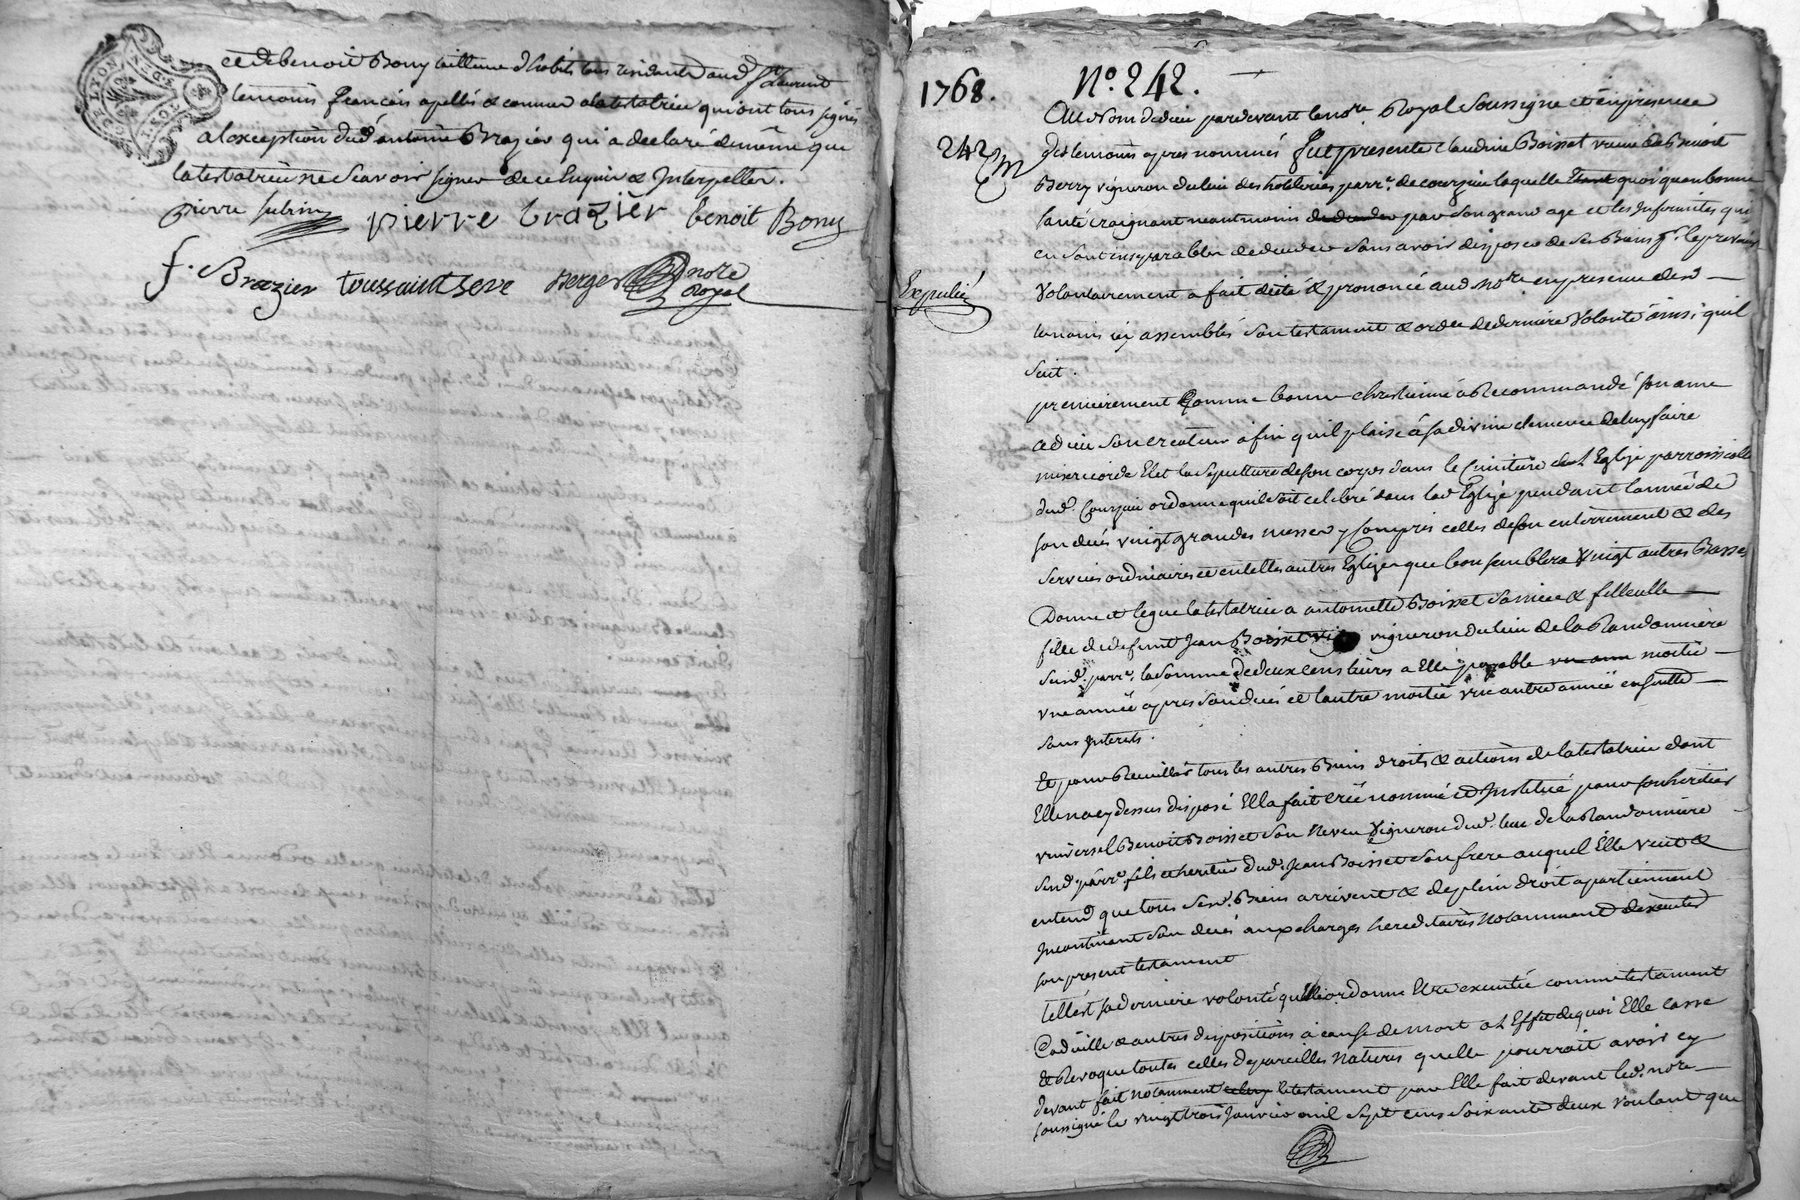 et de benoit Bony tailleur d'habits tous residants aud. St. Laurent
temoins françois apellés & connus a la testatrice qui ont tous signés
a l'exception dud. antoine Brazier qui a declaré de même que
la testatrice ne Scavoir signer de ce Enquis & Interpellés.
pierre brazier benoit Bony
f. Brazier toussaint seve Berger notre
Royal
GEN. DE LYON
1768. N.º 242.
Au Nom de dieu pardevant le not.re Royal Soussigné et en presence
242
des temoins apres nommés fut presente claudine Boisset veuve de Benoit
Berry vigneron du lieu des hoteleries parr.e de courzieu laquelle quoi quen bonne
santé craignant neantmoins par son grand age et les Infirmités qui
en sont inseparables de deceder sans avoir disposé de ses Biens
Expedié
Volontairement a fait dicté & prononcé aud. no.re en presence desd.
temoins icy assemblés son testament & ordre de derniere Volonté ainsi quil
suit.
premierement Comme bonne chretienne a Recommandé son ame
a dieu son createur afin quil plaise a sa divine clemence de luy faire
misericorde Elet la sepulture de son corps dans le Cimitiere de l'Eglise parroissialle
dud. Courzieu ordonne quil soit celebré dans lad. Eglise pendant l'année de
son decés vingt grandes messes y Compris celles de son enterrement & des
services ordinaires et en telles autres Eglises que bon semblera vingt autres Basses
Donne et legue la testatrice a antoinette Boisset sa niece & filleulle
fille de defunt Jean Boisset vigneron du lieu de la Randonniere
susd. parr.e la somme de deux cens livres a Elle payable moitié
une année apres son decés et l'autre moitié une autre année ensuitte
sans Interets.
Et pour Recuillir tous les autres Biens droits & actions de la testatrice dont
Elle na cy dessus disposé Elle a fait créé nommé et Institué pour son heritier
universel Benoit Boisset son Neveu Vigneron dud. lieu de la Randonniere
susd. parr.e fils et heritier dud. Jean Boisset son frere auquel Elle veut &
entend que tous sesd. Biens arrivent & de plein droit apartiennent
Incontinent son decés aux charges hereditaires notamment dexecuter
son present testament
telle est sa derniere volonté quelle ordonne Etre executée comme testament
Codicille & autres dispositions a cause de mort a l'Effet de quoi Elle casse
& Revoque toutes celles de pareilles Natures quelle pourroit avoir cy
devant fait notamment le testament par Elle fait devant led. no.re
soussigné le vingt trois Janvier mil sept cens soixante deux voulant que